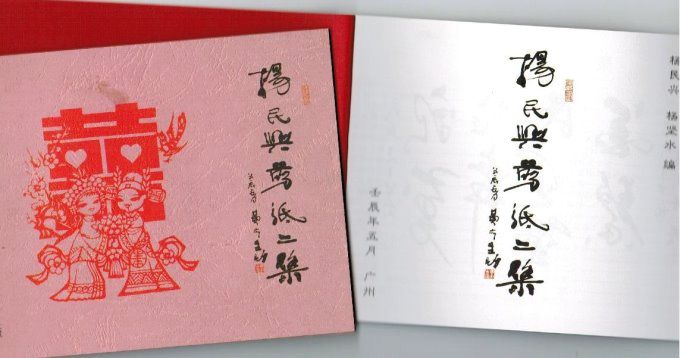 囍
楊民興翦紙二集
楊民興翦紙二集
杨民兴 杨坚水 编
壬辰年五月 广州